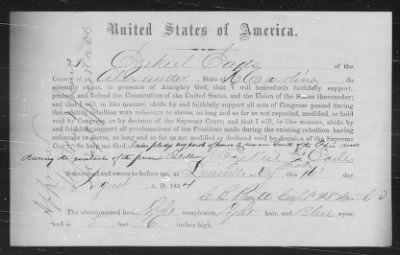 United States of America.
I, Ezekiel Eades of the
County of Alexander State of N Carolina, do
solemnly swear, in presence of Almighty God, that I will henceforth faithfully support,
protect, and defend the Constitution of the United States, and the Union of the States thereunder;
and that I will, in like manner, abide by and faithfully support all acts of Congress passed during
this existing rebellion with reference to slaves, so long and so far as not repealed, modified, or held
void by Congress, or by decision of the Supreme Court; and that I will, in like manner, abide by
and faithfully support all proclamations of the President made during the existing rebellion having
reference to slaves, so long and so far as not modified or declared void by decision of the Supreme
Court: So help me God. north of the Ohio
during the of the present
Ezekiel Eades
Subscribed and sworn to before me, at Louisville Ky this 16
A. D. 1864
Capt
The above-named has light complexion, light hair, and Blue eyes;
and is 5 feet 6 inches high.